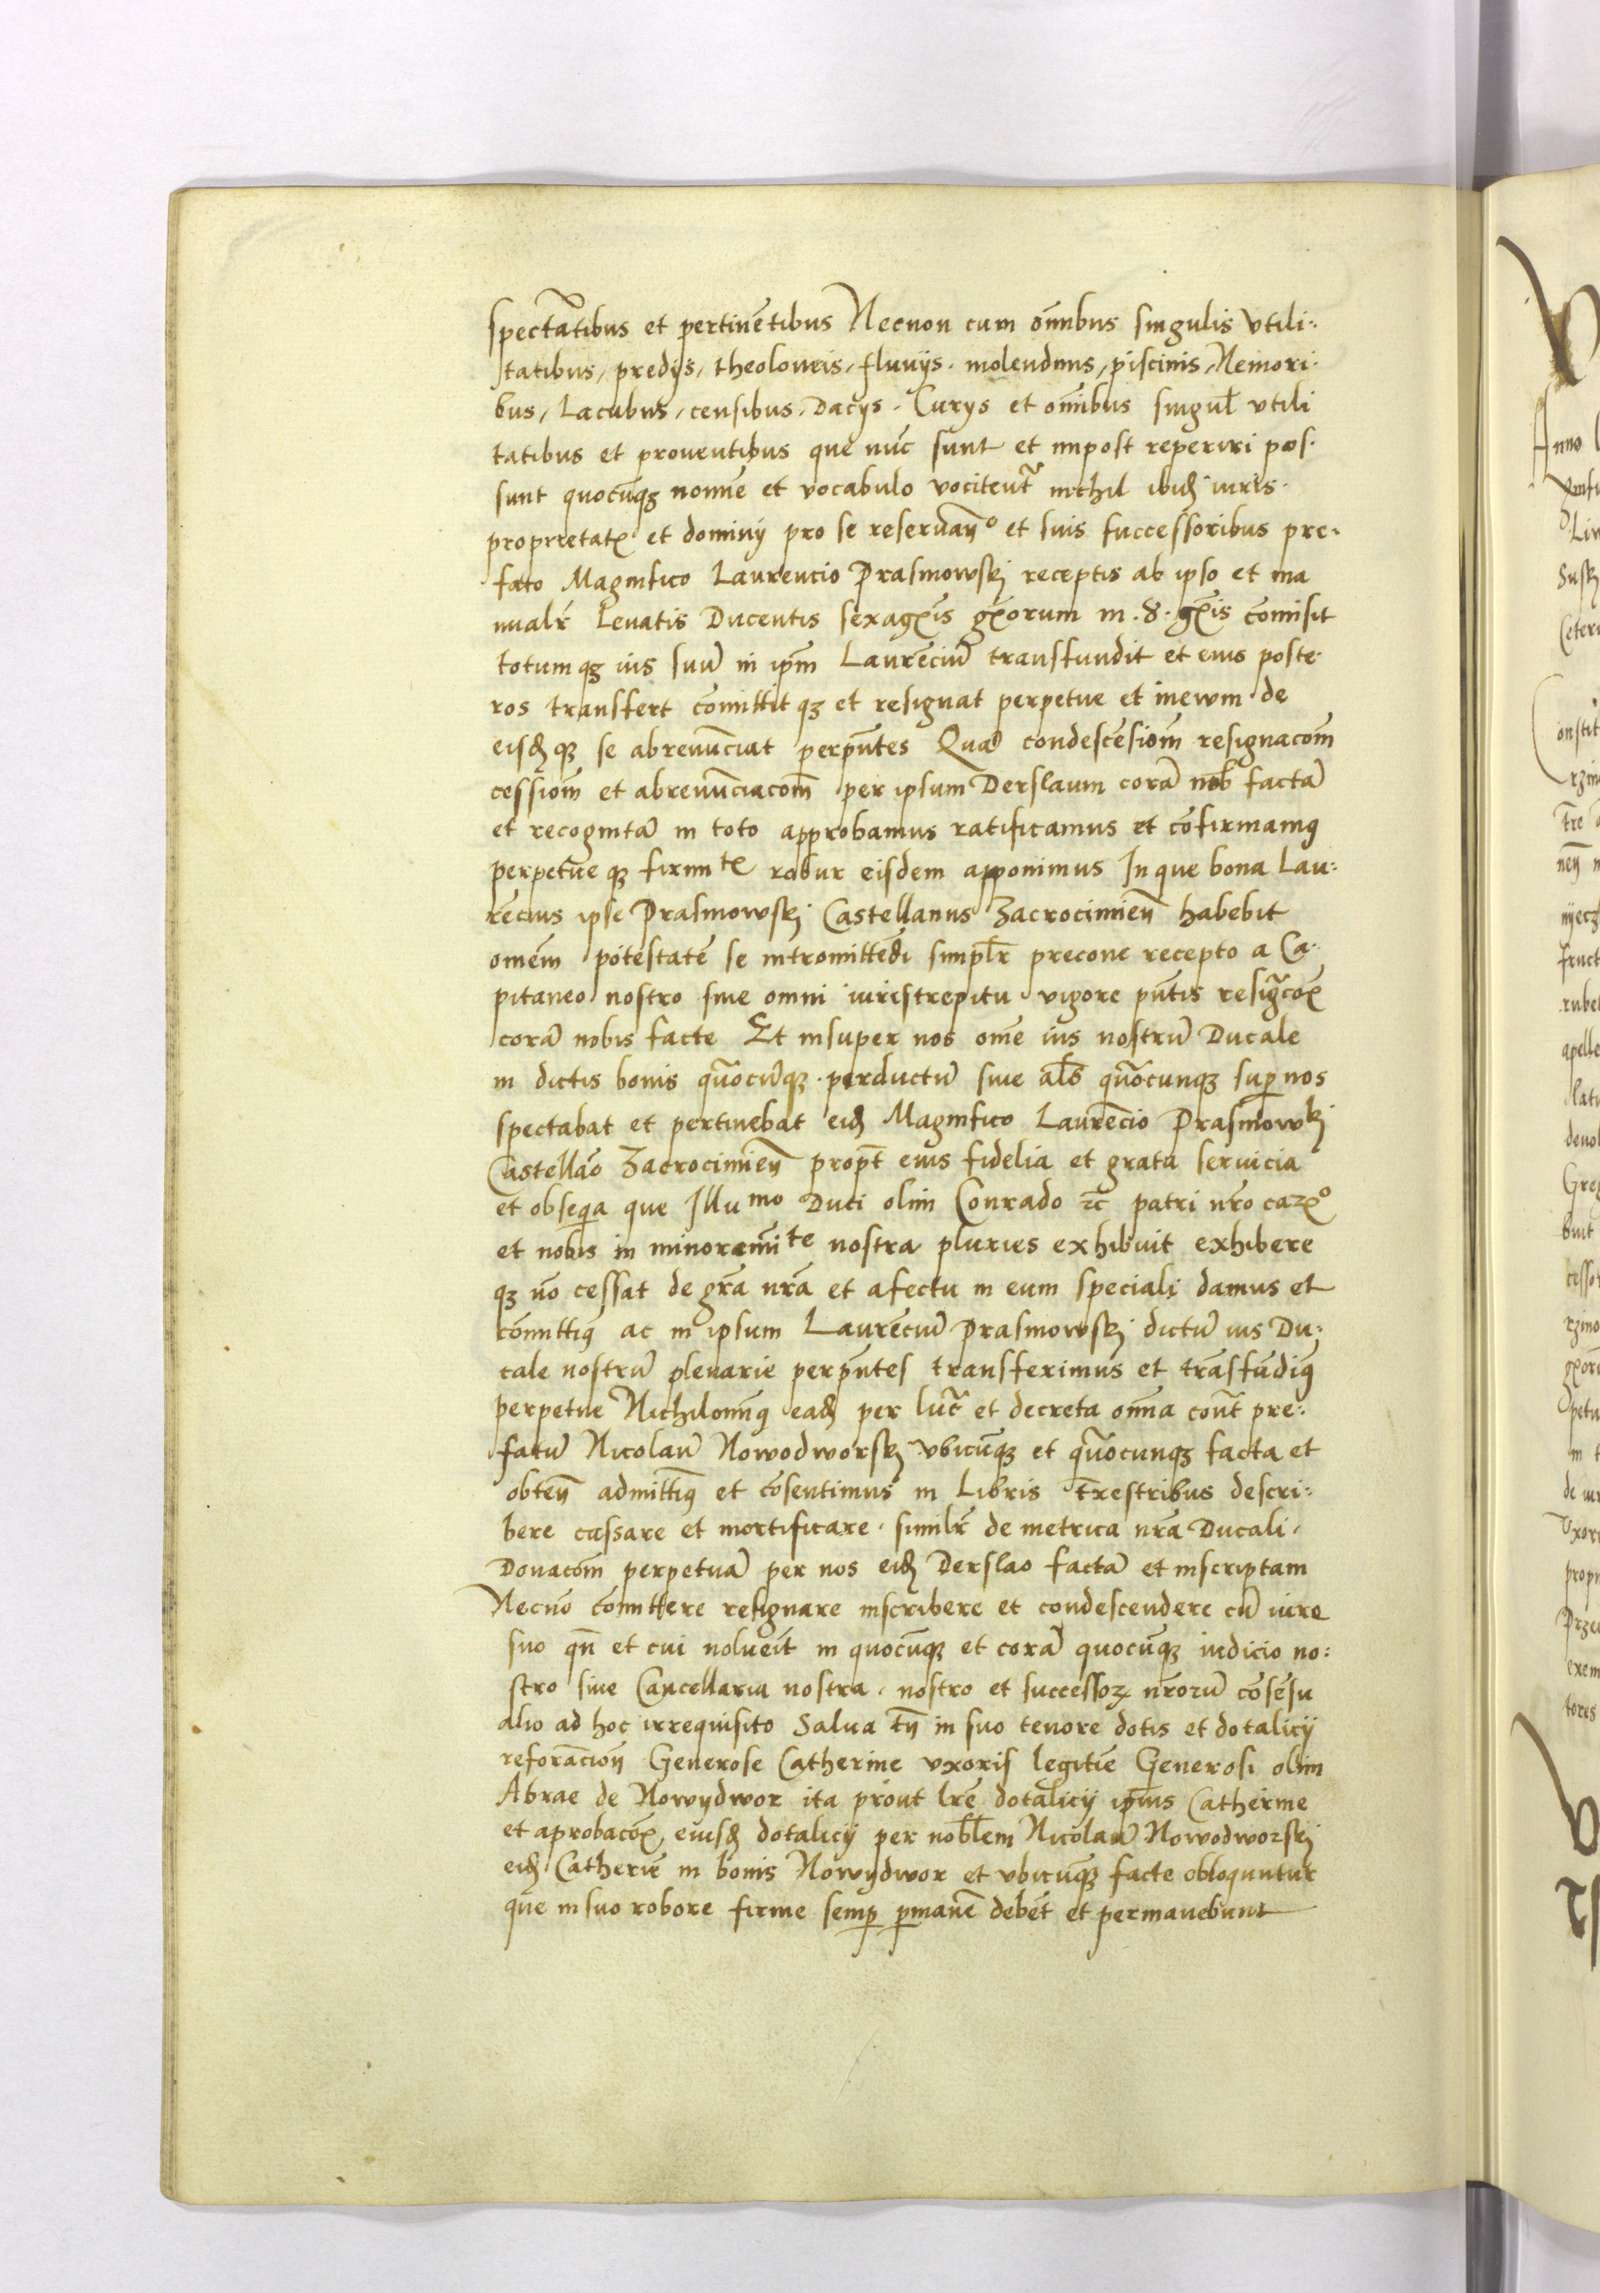 spectātibus et pertinētibus Necnon cum om̄ibus singulis vtili:
tatibus, predijs, theoloneis, fluuijs, molendinis, piscinis, Nemori:
bus, Lacubus, censibus, Dacijs, Curijs et om̄ibus singul̄ vtili
tatibus et prouentibus que nūc sunt et impost reperiri pos:
sunt quocūqꝫ nomīe et vocabulo vocitent᷑ nichil ibid iuris.
proprietatꝭ et dominij pro se reseruan̄o et suis successoribus pre:
fato Magnifico Laurencio Prasmowskj receptis ab ipso et ma
nualr̄ Leuatis Ducentis sexagꝭis gꝭorum in .8. gꝭis cōmisit
totumqꝫ ius suū in ip̄m Laurēciū transfundit et eius poste:
ros transfert cōmittitqꝫ et resignat perpetue et in ewm de
eisdqꝫ se abrenūciat perp̄ntes Quā condescēsiōm resignacōm
cessiōm et abrenūciacōm per ipsum Derslaum corā nob̄ factā
et recognitā in toto approbamus ratificamus et cōfirmamꝰ
perpetueqꝫ firmitꝭ robur eisdem apponimus In que bona Lau:
rēcius ipse Prasmowskj Castellanus Zacrocimien̄ habebit
omēm potestatē se intromittēdi simpl̄r precone recepto a Ca:
pitaneo nostro sine omni iuris strepitu vigore p̄ntis resigᷓcoꝭ
corā nobis facte Et insuper nos om̄e ius nostrū Ducale
in dictis bonis quōcūqꝫ perductū siue al̄s quōcunqꝫ sup̱ nos
spectabat et pertinebat eid Magnifico Laurēcio Prasmowskj
Castellāo Zacrocimien̄ propt̄ eius fidelia et grata seruicia
et obseq̱a que Illumo Duci olim Conrado ⁊c̄ patri nr̄o carꝭo
et nobis in minorēnite nostra pluries exhibuit exhibere
qꝫ nō cessat de gr̄a nr̄a et afectu in eum speciali damus et
cōmittiꝰ ac in ipsum Laurēciū Prasmowskj dictū ius Du:
cale nostrū plenarie perp̄ntes transferimus et trāsfūdiꝰ
perpetue Nichilominꝰ ead per luc᷑ et decreta om̄ia cont᷑ pre:
fatū Nicolaū Nowodworskj vbicūqꝫ et quōcunqꝫ facta et
obten̄ admittiꝰ et cōsentimus in Libris t̄restribus descri:
bere cassare et mortificare. similr̄ de metrica nr̄a Ducali.
Donacōm perpetuā per nos eid Derslao factā et inscriptam
Necnō cōmittere resignare inscribere et condescendere cū iure
suo qn̄ et cui noluerit in quocūqꝫ et corā quocūqꝫ iudicio no:
stro siue Cancellaria nostra, nostro et successoꝝ nr̄orū cōsēsu
alio ad hoc irrequisito Salua tn̄ in suo tenore dotis et dotalicij
reforācion̄ Generose Catherine vxoris legitīe Generosi olim
Abrae de Nowydwor ita prout lr̄e dotalicij ipīus Catherine
et aprobacoꝭ, eiusd dotalicij per nob̄lem Nicolaū Nowodworskj
eid Catherīe in bonis Nowydwor et vbicūqꝫ facte obloquntur
que in suo robore firme semp̱ p̱manē debēt et permanebunt